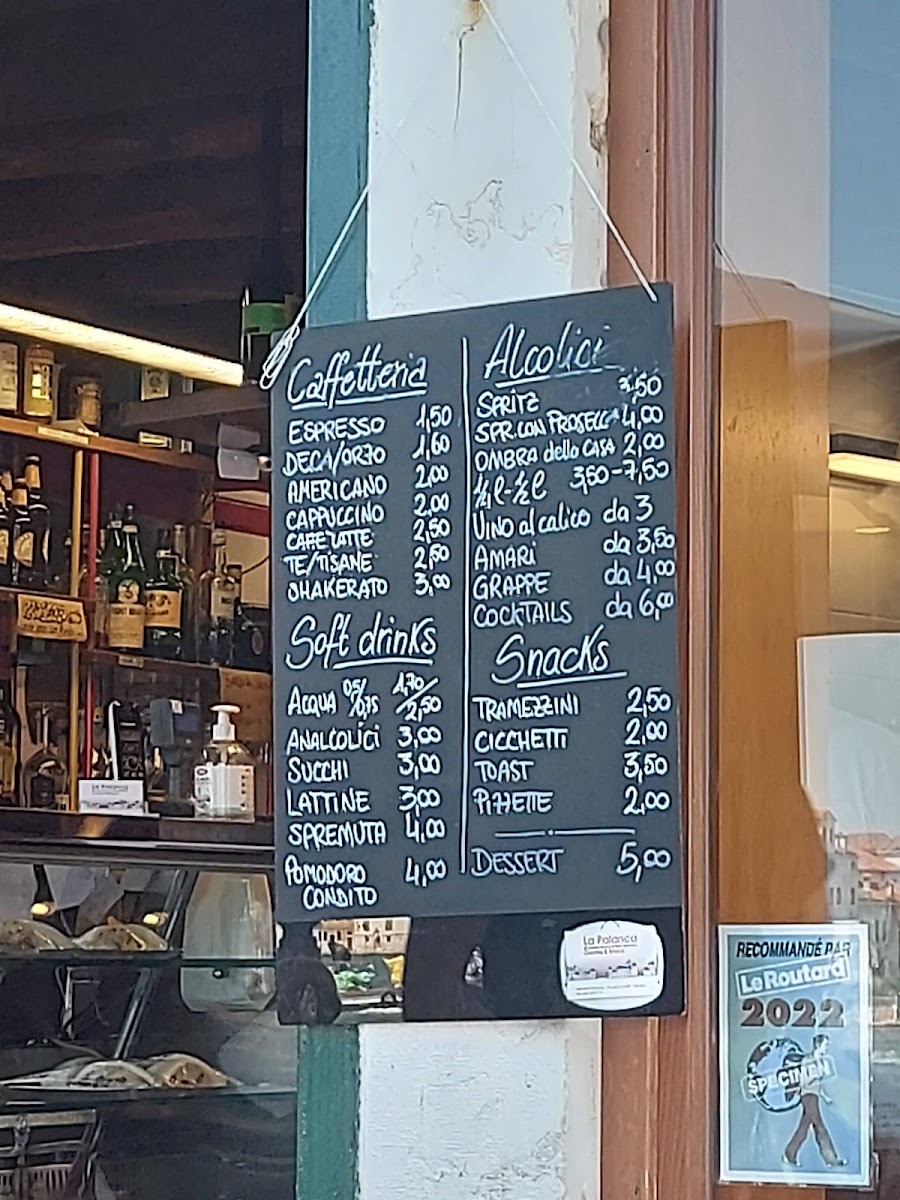 Caffetteria
ESPRESSO 1,50
DECA/ORZO 1,60
AMERICANO 2,00
CAPPUCCINO 2,00
CAFFELATTE 2,50
TE/TISANE 2,50
SHAKERATO 3,00
Soft drinks
ACQUA 0,5/0,75 1,70/2,50
ANALCOLICI 3,00
SUCCHI 3,00
LATTINE 3,00
SPREMUTA 4,00
POMODORO 4,00
CONDITO
Alcolici
SPRITZ 3,50
SPR. CON PROSECCO 4,00
OMBRA della CASA 2,00
¼ l - ½ l 3,50-7,50
VINO al calice da 3
AMARI da 3,50
GRAPPE da 4,00
COCKTAILS da 6,00
Snacks
TRAMEZZINI 2,50
CICCHETTI 2,00
TOAST 3,50
PIZZETTE 2,00
DESSERT 5,00
La Palanca
La Palanca
RECOMMANDÉ PAR
Le Routard
2022
SPECIMEN